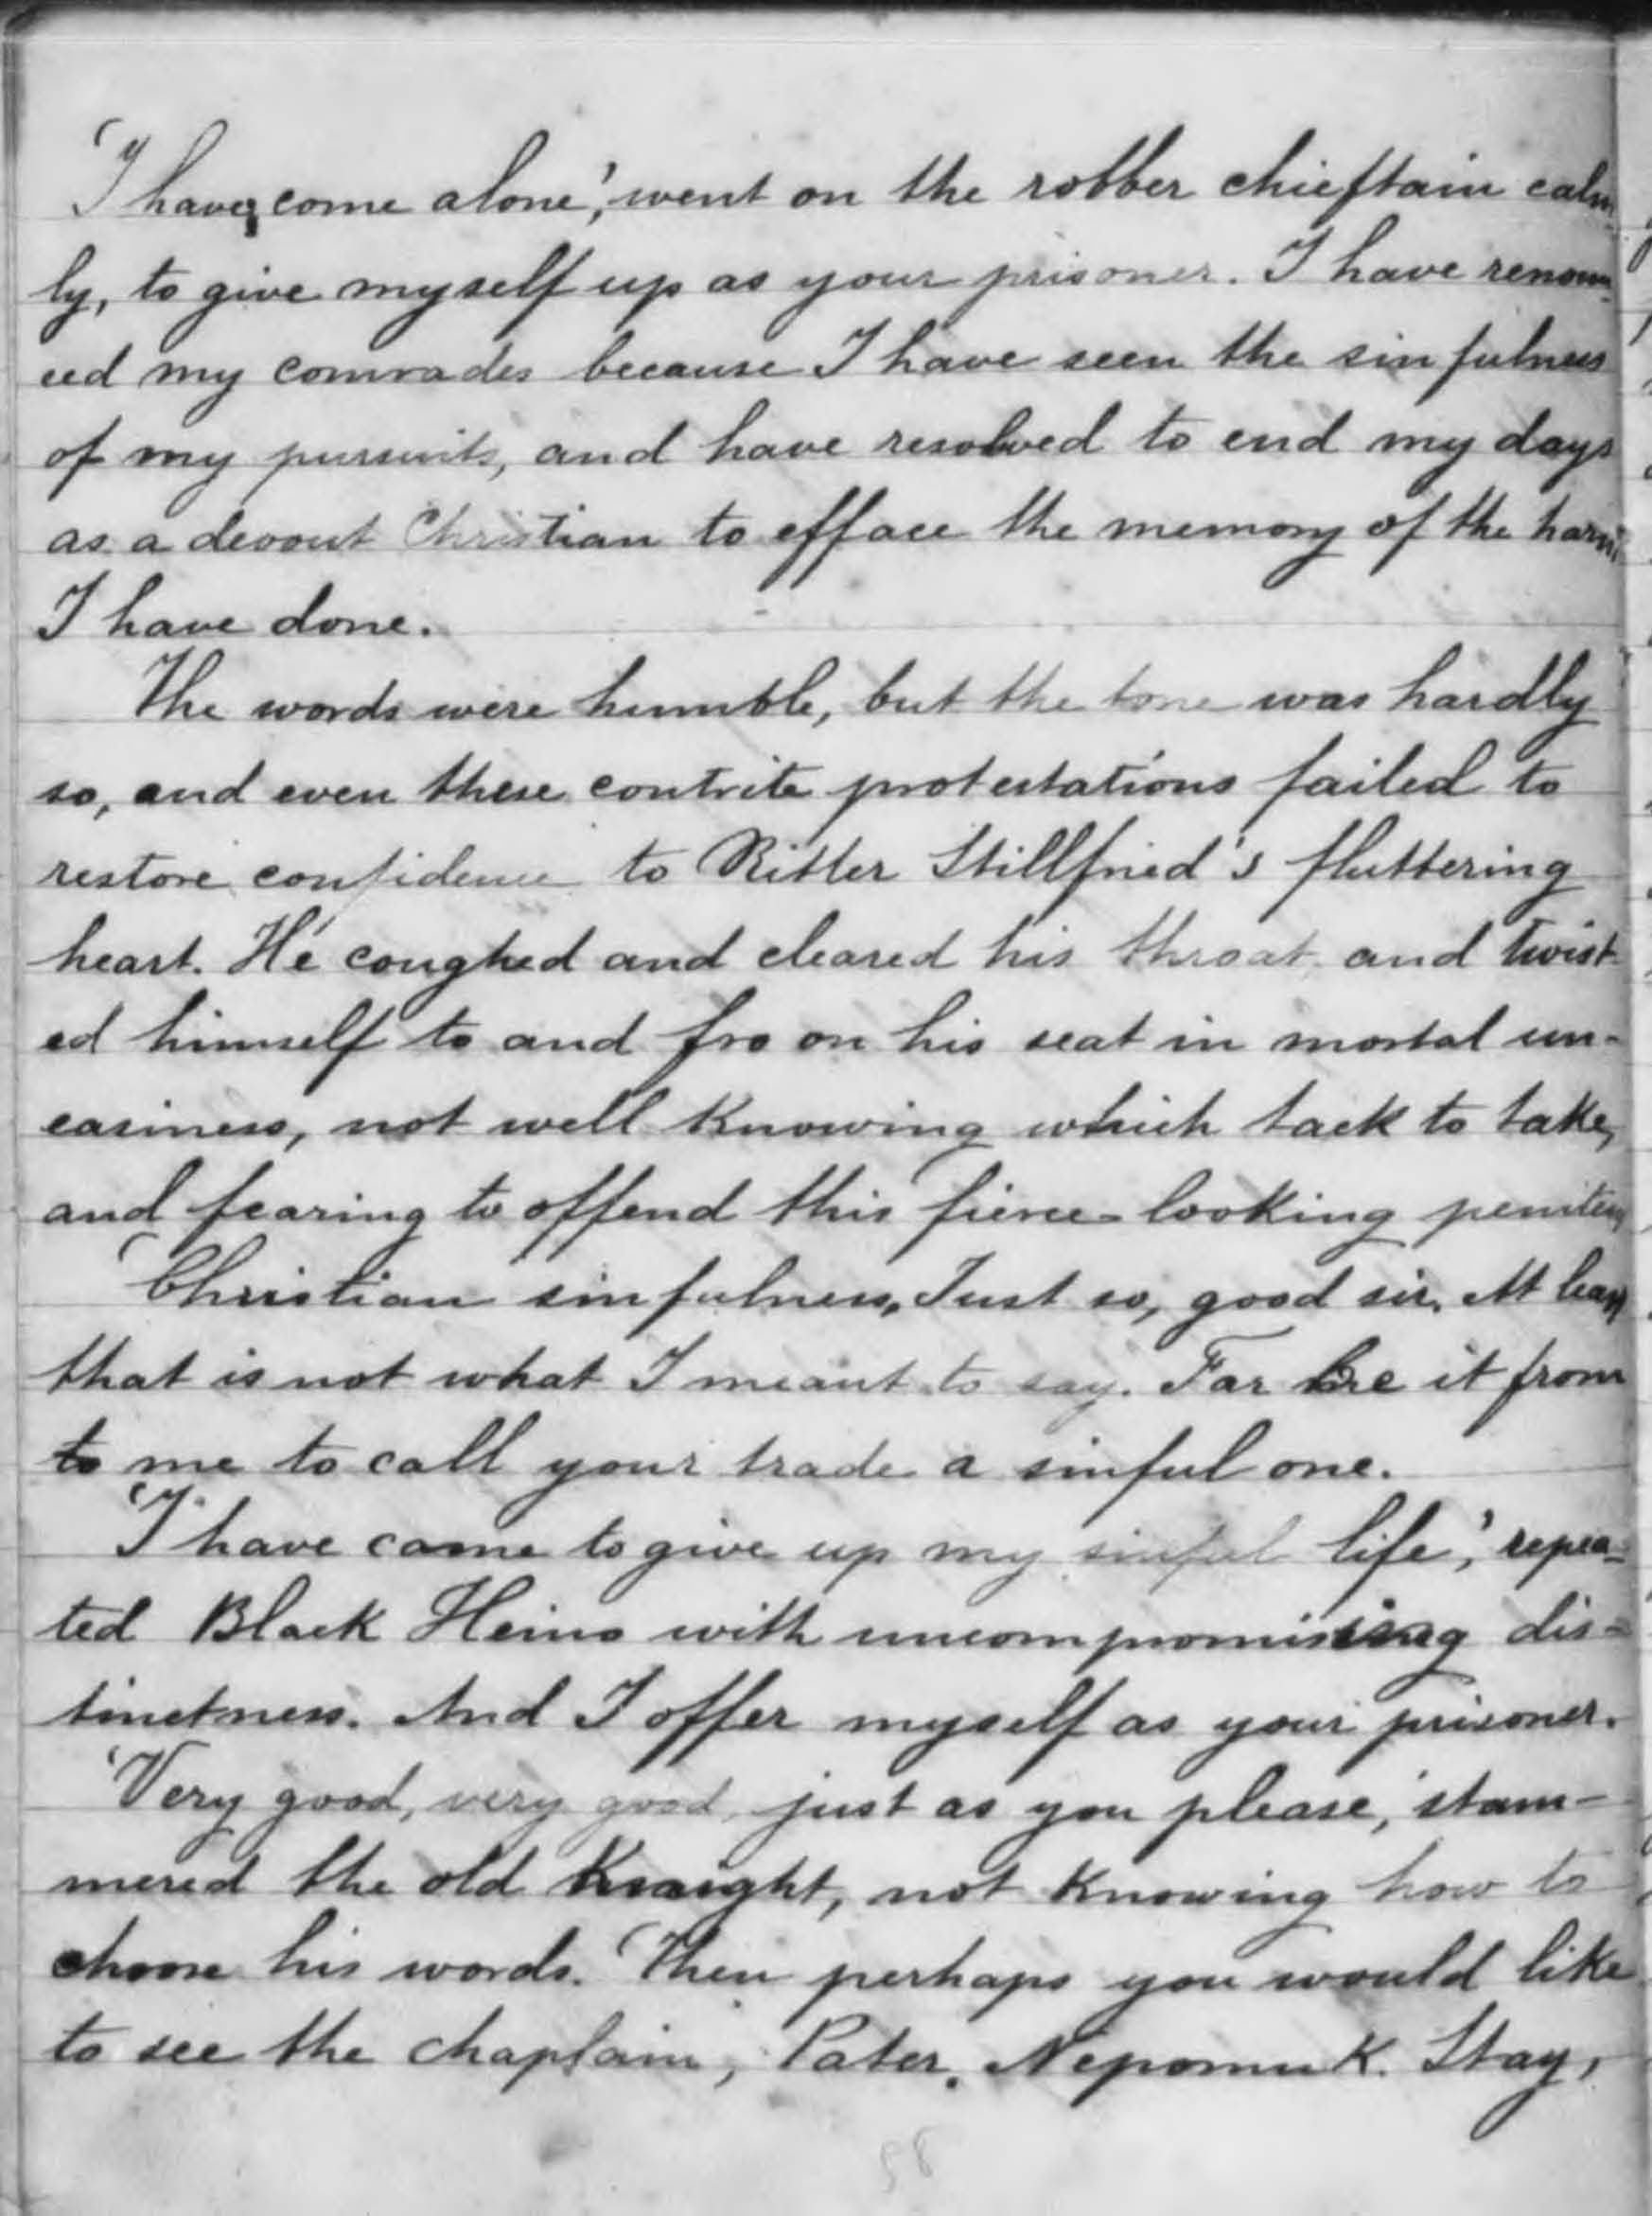 'I have come alone', went on the robber chieftain calm
ly, to give myself up as your prisoner. I have renoun
ced my comrades because I have seen the sinfulness
of my pursuits, and have resolved to end my days
as a devout Christian to efface the memory of the harm
I have done.
The words were humble, but the tone was hardly
so, and even these contrite protestations failed to
restore confidence to Ritter Stillfried's fluttering
heart. He coughed and cleared his throat and twist
ed himself to and fro on his seat in mortal un-
easiness, not well knowing which tack to take,
and fearing to offend this fierce-looking penitent
'Christian sinfulness, Just so, good sir. At least
that is not what I meant to say. Far be it from
to me to call your trade a sinful one.
'I have come to give up my sinful life', repea-
ted Black Heino with uncompromising dis-
tinctness. And I offer myself as your prisoner.
'Very good, very good just as you please,' stam-
mered the old Knight, not knowing how to
choose his words. 'Then perhaps you would like
to see the chaplain, Pater. Nepomuk. Stay,
58